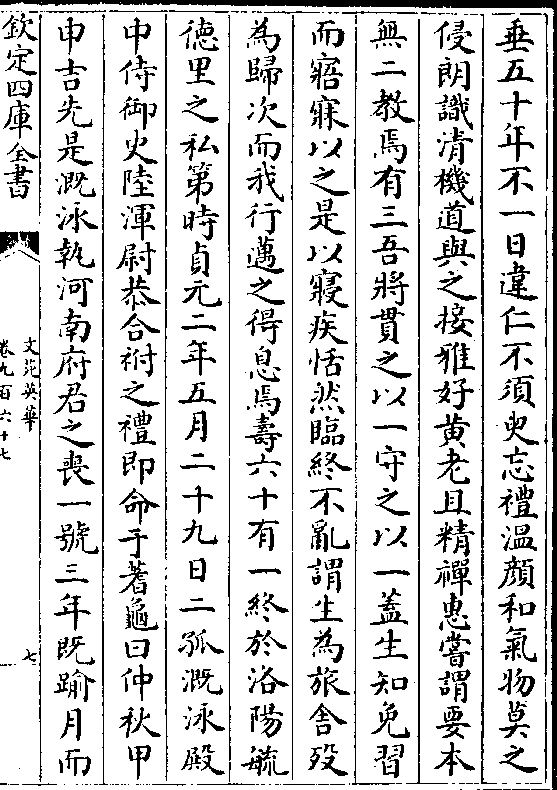 垂五十年不一日違仁不須臾忘禮溫顔和氣物莫之
侵朗識清機道與之接雅好黄老且精禪惠嘗謂要本
無二教焉有三吾將貫之以一守之以一蓋生知免習
而寤寐以之是以寢疾恬然臨終不亂謂生為旅舍殁
為歸次而我行邁之得息焉壽六十有一終於洛陽毓
德里之私第時貞元二年五月二十九日二孤溉泳殿
中侍御史陸渾尉恭合祔之禮即命于蓍龜曰仲秋甲
申吉先是溉泳執河南府君之喪一號三年既踰月而
欽定四庫全書
文苑英華
卷九百六十七
七